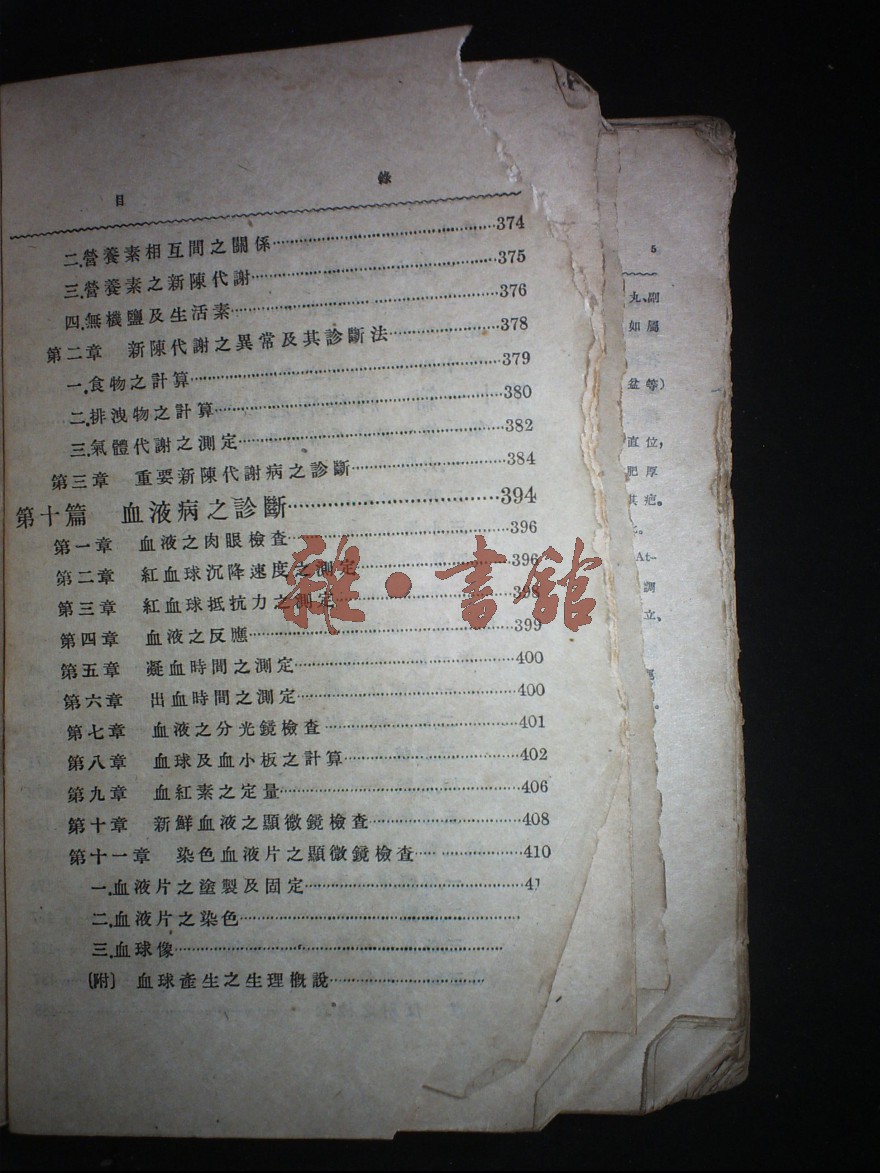 目 錄
二.營養素相互間之關係……374
三.營養素之新陳代謝……375
四.無機鹽及生活素……376
第二章 新陳代謝之異常及其診斷法……378
一.食物之計算……379
二.排洩物之計算……380
三.氣體代謝之測定……382
第三章 重要新陳代謝病之診斷……384
第十篇 血液病之診斷……394
第一章 血液之肉眼檢查……396
第二章 紅血球沉降速度之測定……396
第三章 紅血球抵抗力之測定……398
第四章 血液之反應……399
第五章 凝血時間之測定……400
第六章 出血時間之測定……400
第七章 血液之分光鏡檢查……401
第八章 血球及血小板之計算……402
第九章 血紅素之定量……406
第十章 新鮮血液之顯微鏡檢查……408
第十一章 染色血液片之顯微鏡檢查……410
一.血液片之塗製及固定……41
二.血液片之染色……
三.血球像……
〔附〕 血球產生之生理概說……
雜·書館
5
丸、副
如屬
盆等)
直位,
肥厚
其疤。
At-
調
立、